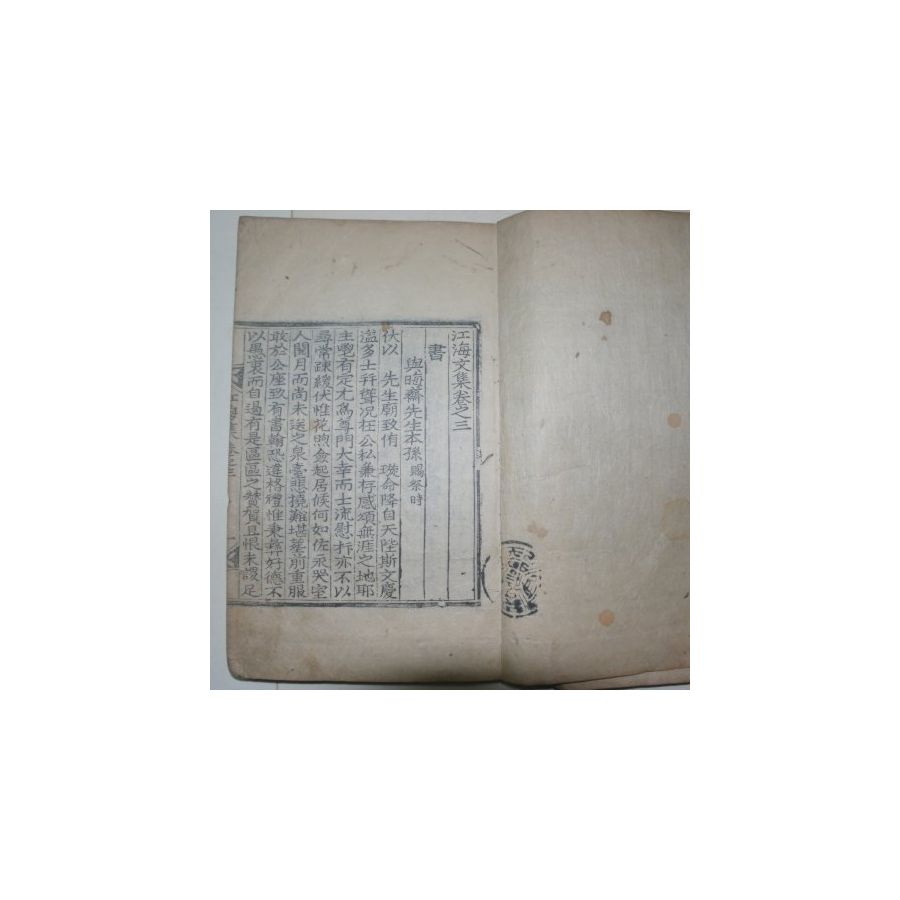 江海文集卷之三
書
與晦齋先生本孫 賜祭時
伏以 先生廟致侑 璇命降自天陛斯文慶
溢多士幷聳况枉公私兼存感頌無涯之地耶
主鬯有定尤爲尊門大幸而士流慰抃亦不以
尋常疎緩伏惟花煦僉起居候何如佐永哭室
人閱月而尚未送之泉臺悲撓難堪墓前重服
敢於公座致有書翰恐違格禮惟秉彛好德不
以愚衷而自過有是區區之贊賀且恨未設足